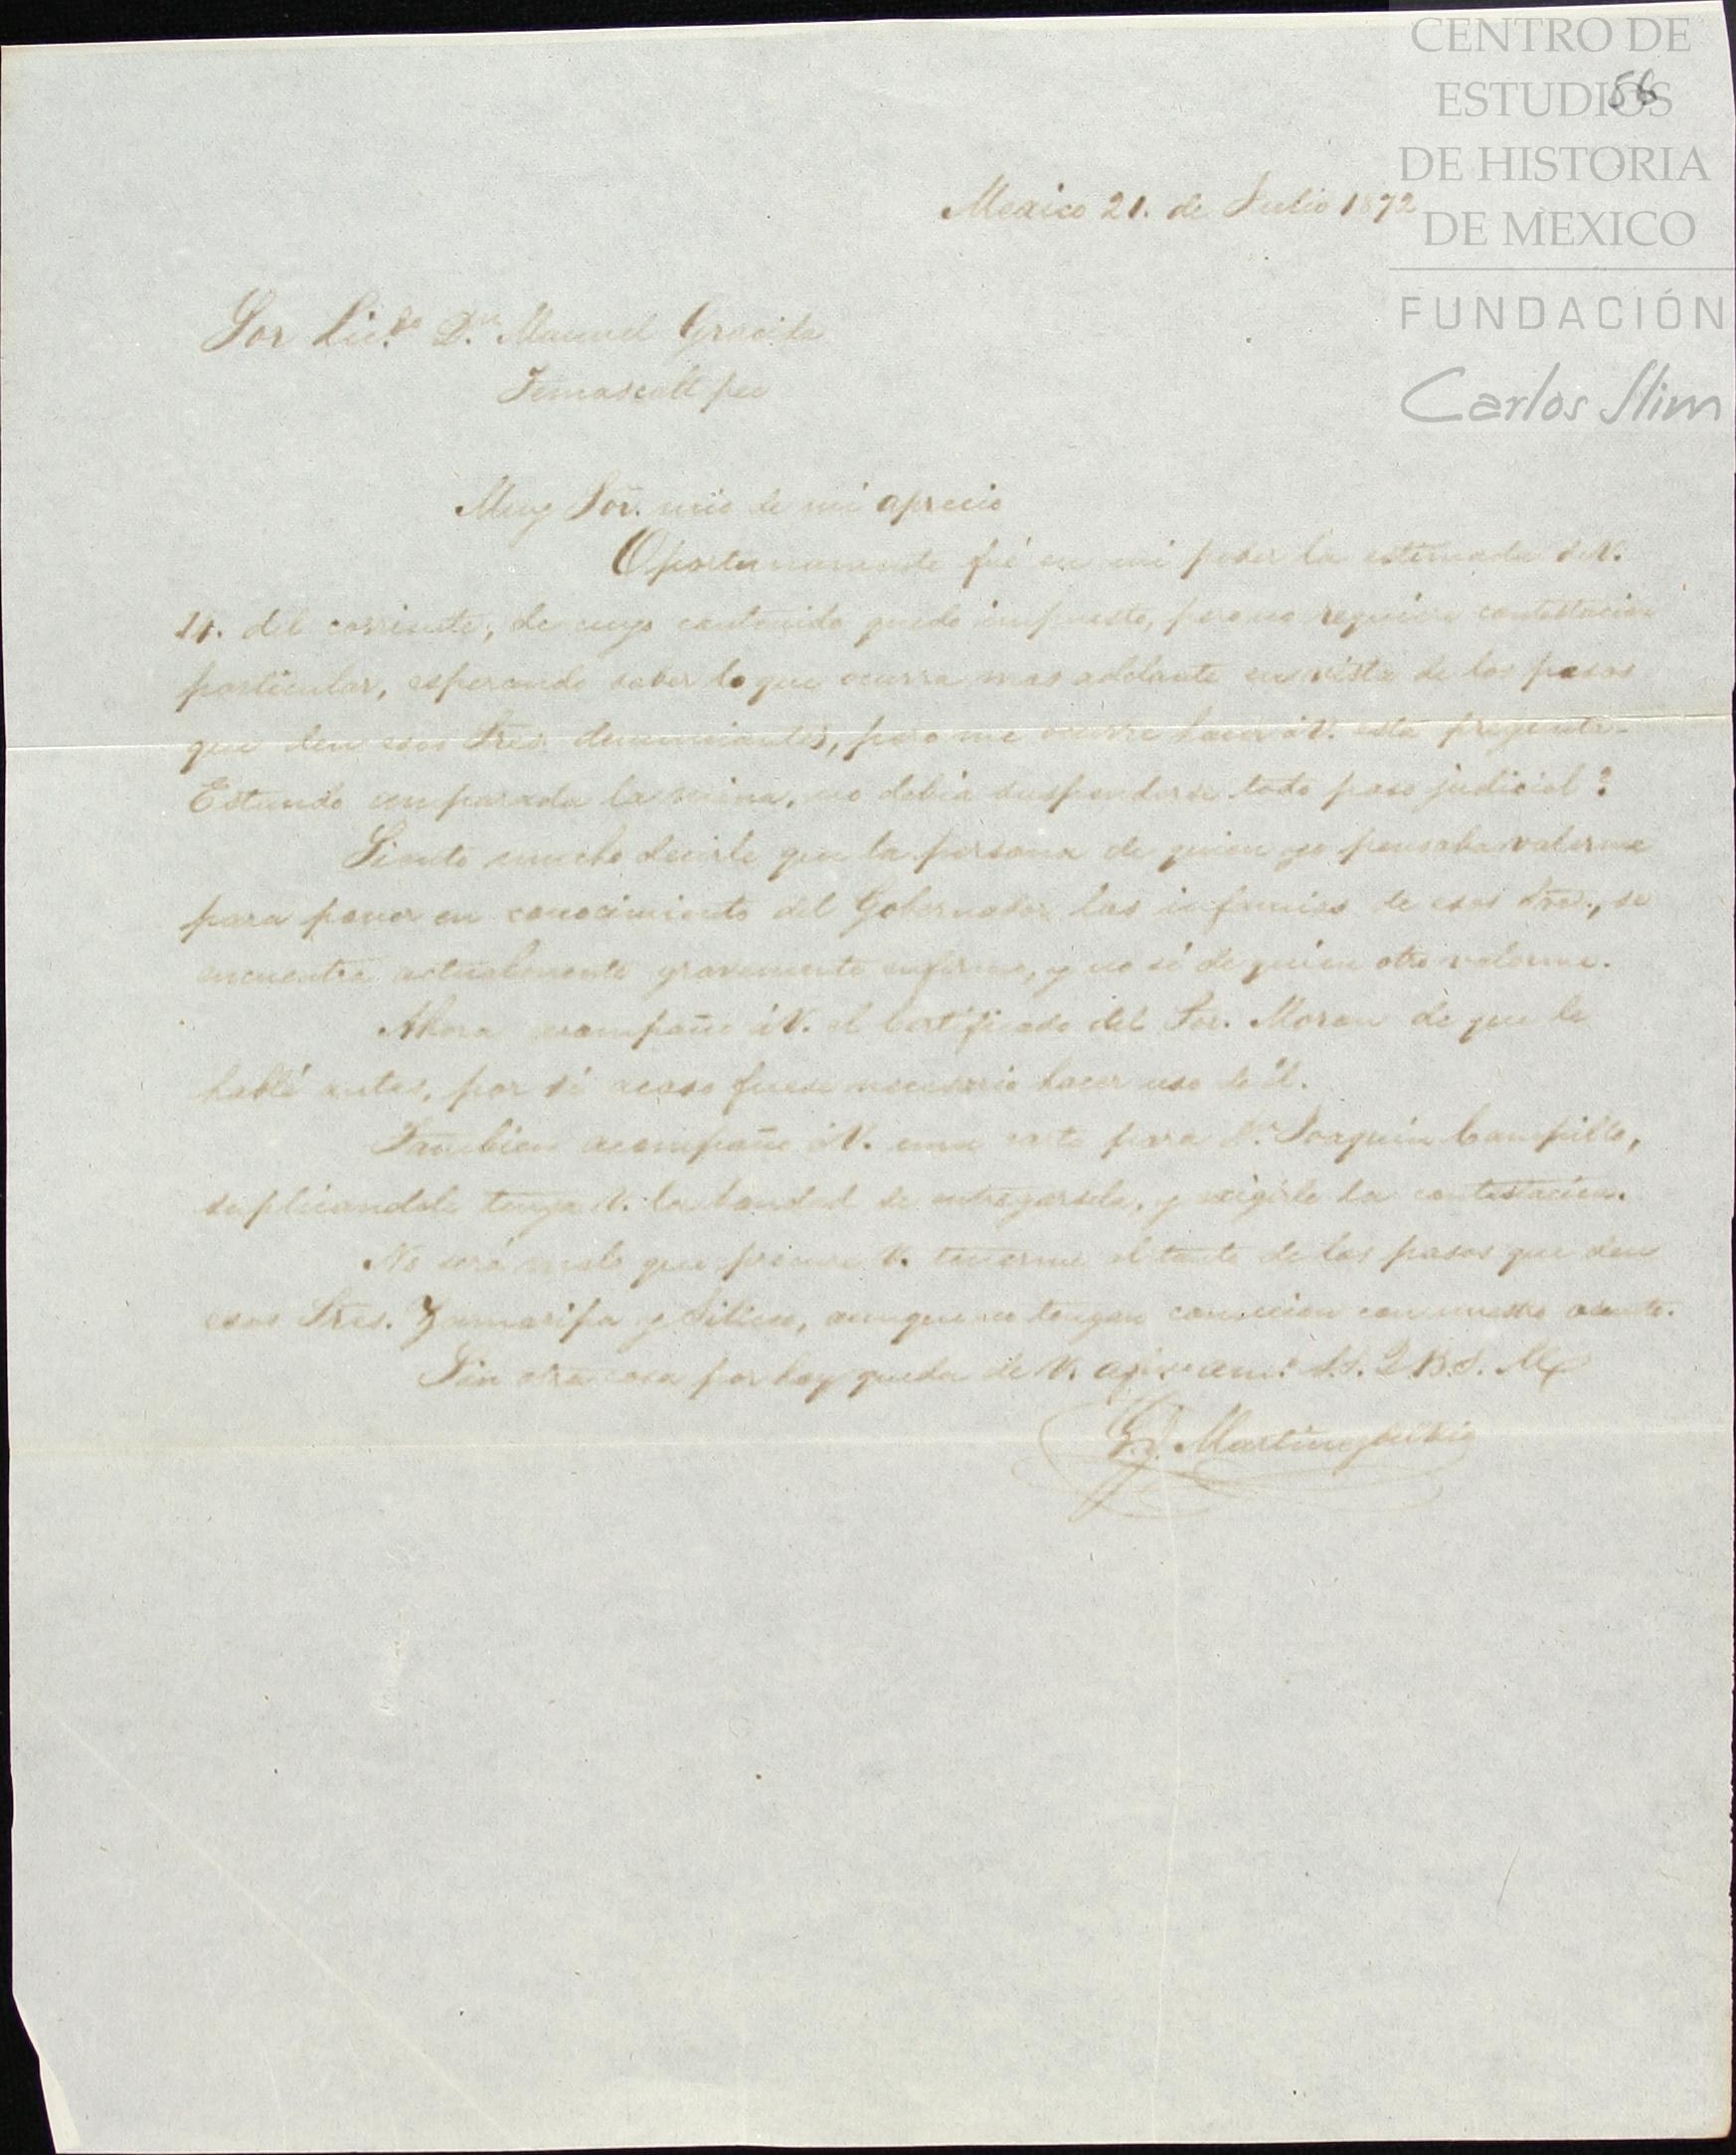 CENTRO DE
ESTUDIOS
DE HISTORIA
DE MEXICO
FUNDACIÓN
Carlos Slim
56
Mexico 21. de Julio 1872
Sor Lic.do Dn. Manuel Gracida
Temascaltepec
Muy Sor. mio de mi aprecio
Oportunamente fué en mi poder la estimada de V.
14. del corriente, de cuyo contenido quedo impuesto, pero no requiere contestacion
particular, esperando saber lo que ocurra mas adelante en vista de los pasos
que den esos Sres. denunciantes, pero me ocurre hacer á V. esta pregunta.
Estando amparada la mina, no debia suspenderse todo paso judicial?
Siento mucho decirle que la persona de quien yo pensaba valerme
para poner en conocimiento del Gobernador las infamias de esos Sres., se
encuentra actualmente gravemente enfermo, y no sé de quien otro valerme.
Ahora acompaño á V. el Certificado del Sor. Moran de que le
hablé antes, por si acaso fuese necesario hacer uso de él.
Tambien acompaño á V. una carta para Dn. Joaquin Campillo,
suplicandole tenga V. la bondad de entregarsela, y exigirle la contestacion.
No será malo que procure V. tenerme al tanto de los pasos que den
esos Sres. Zamaripa y Siliceo, aunque no tengan coneccion con nuestro asunto.
Sin otra cosa por hoy queda de V. afmo. amo. S.S. Q.B.S.M.
Martinez del Rio